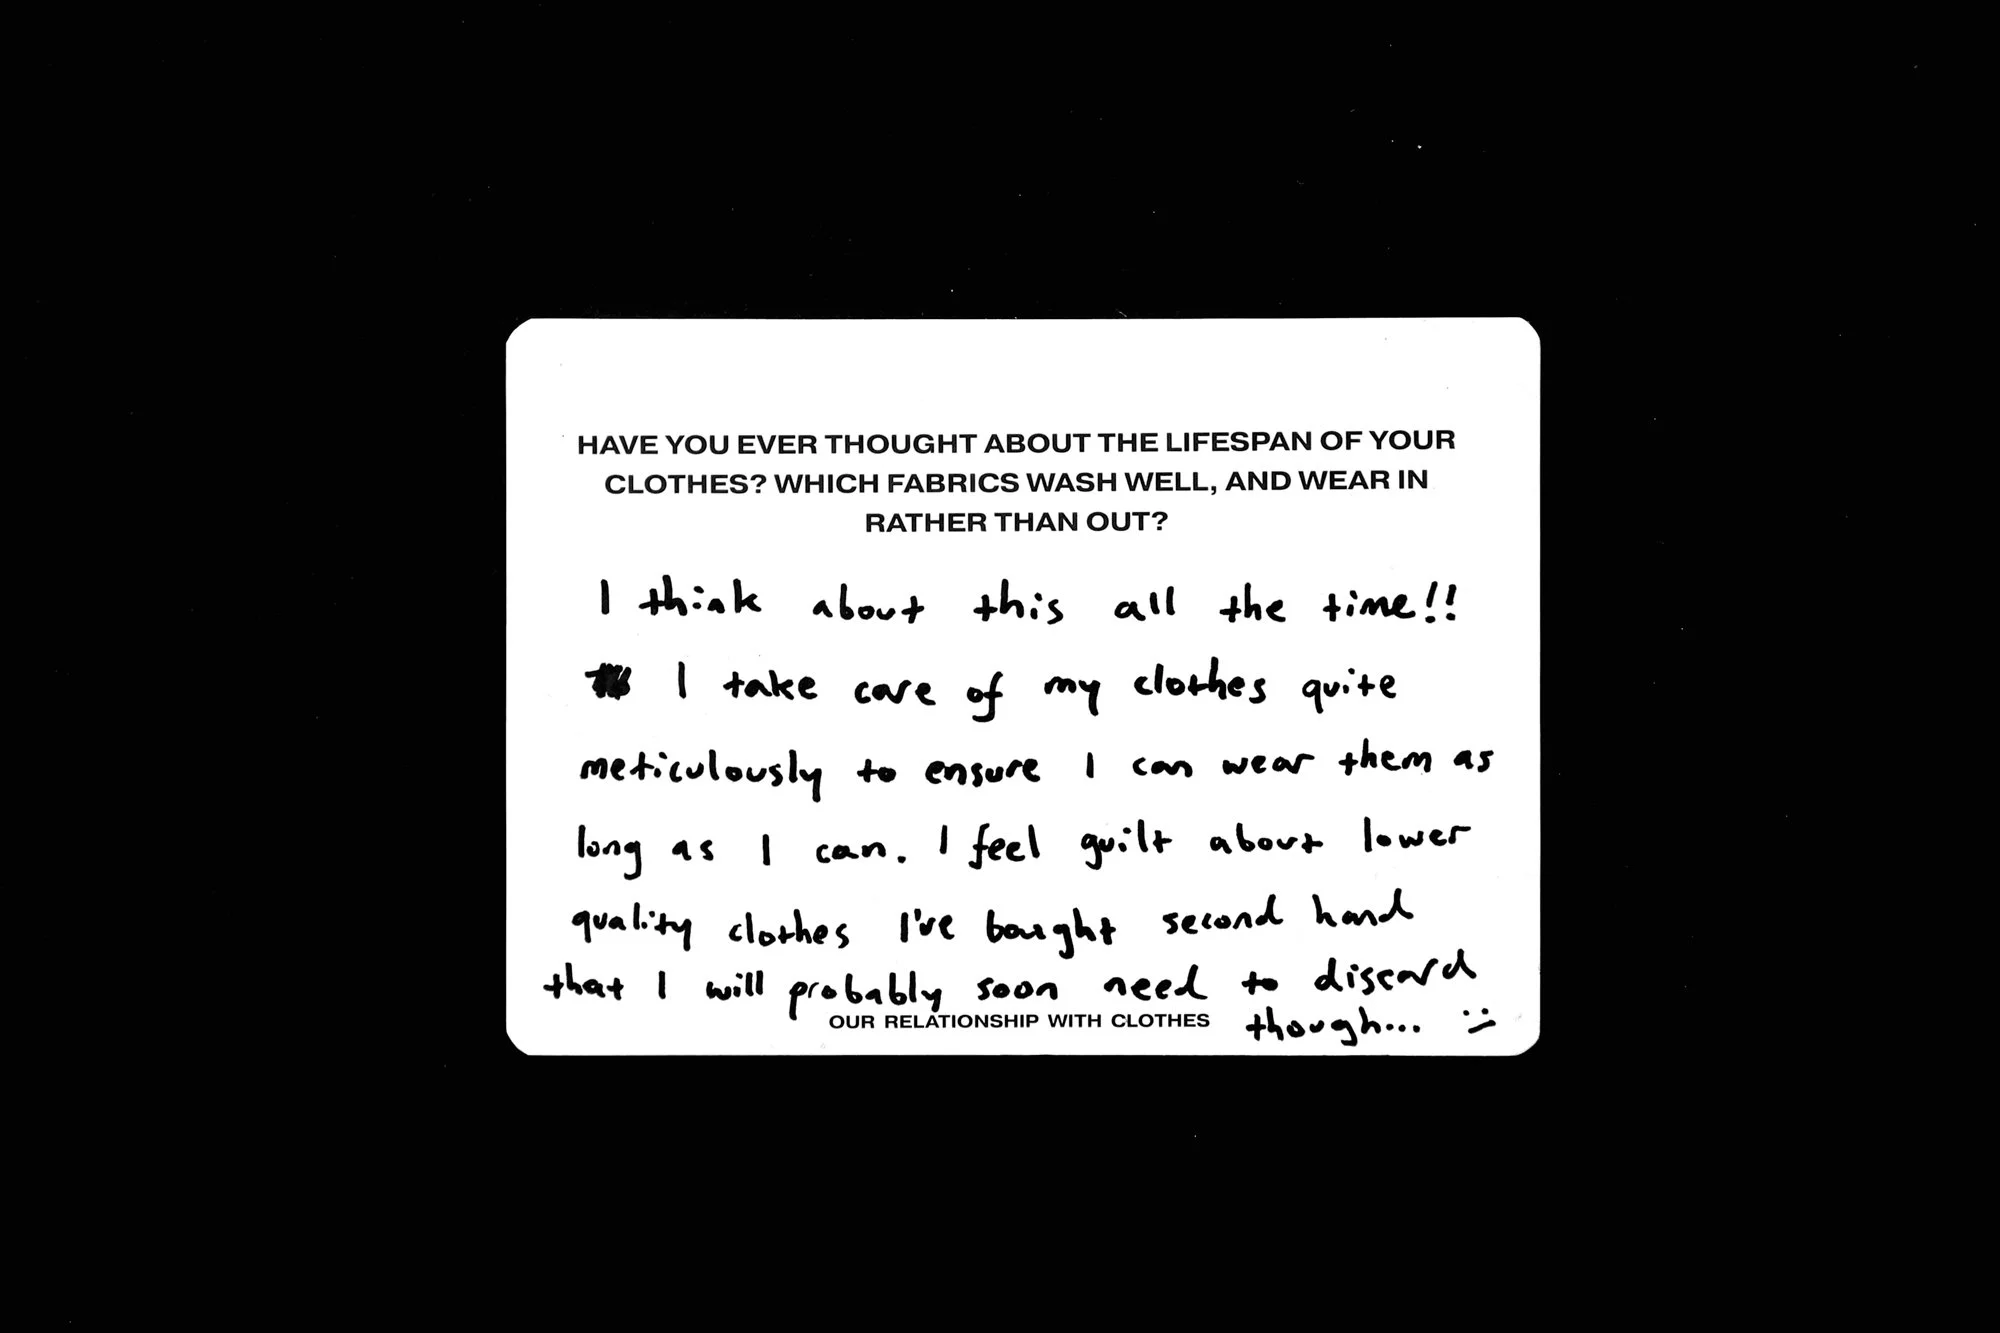 HAVE YOU EVER THOUGHT ABOUT THE LIFESPAN OF YOUR
CLOTHES? WHICH FABRICS WASH WELL, AND WEAR IN
RATHER THAN OUT?
I think about this all the time!!
I take care of my clothes quite
meticulously to ensure I can wear them as
long as I can. I feel guilt about lower
quality clothes I've bought second hand
that I will probably soon need to discard
though... :/
OUR RELATIONSHIP WITH CLOTHES